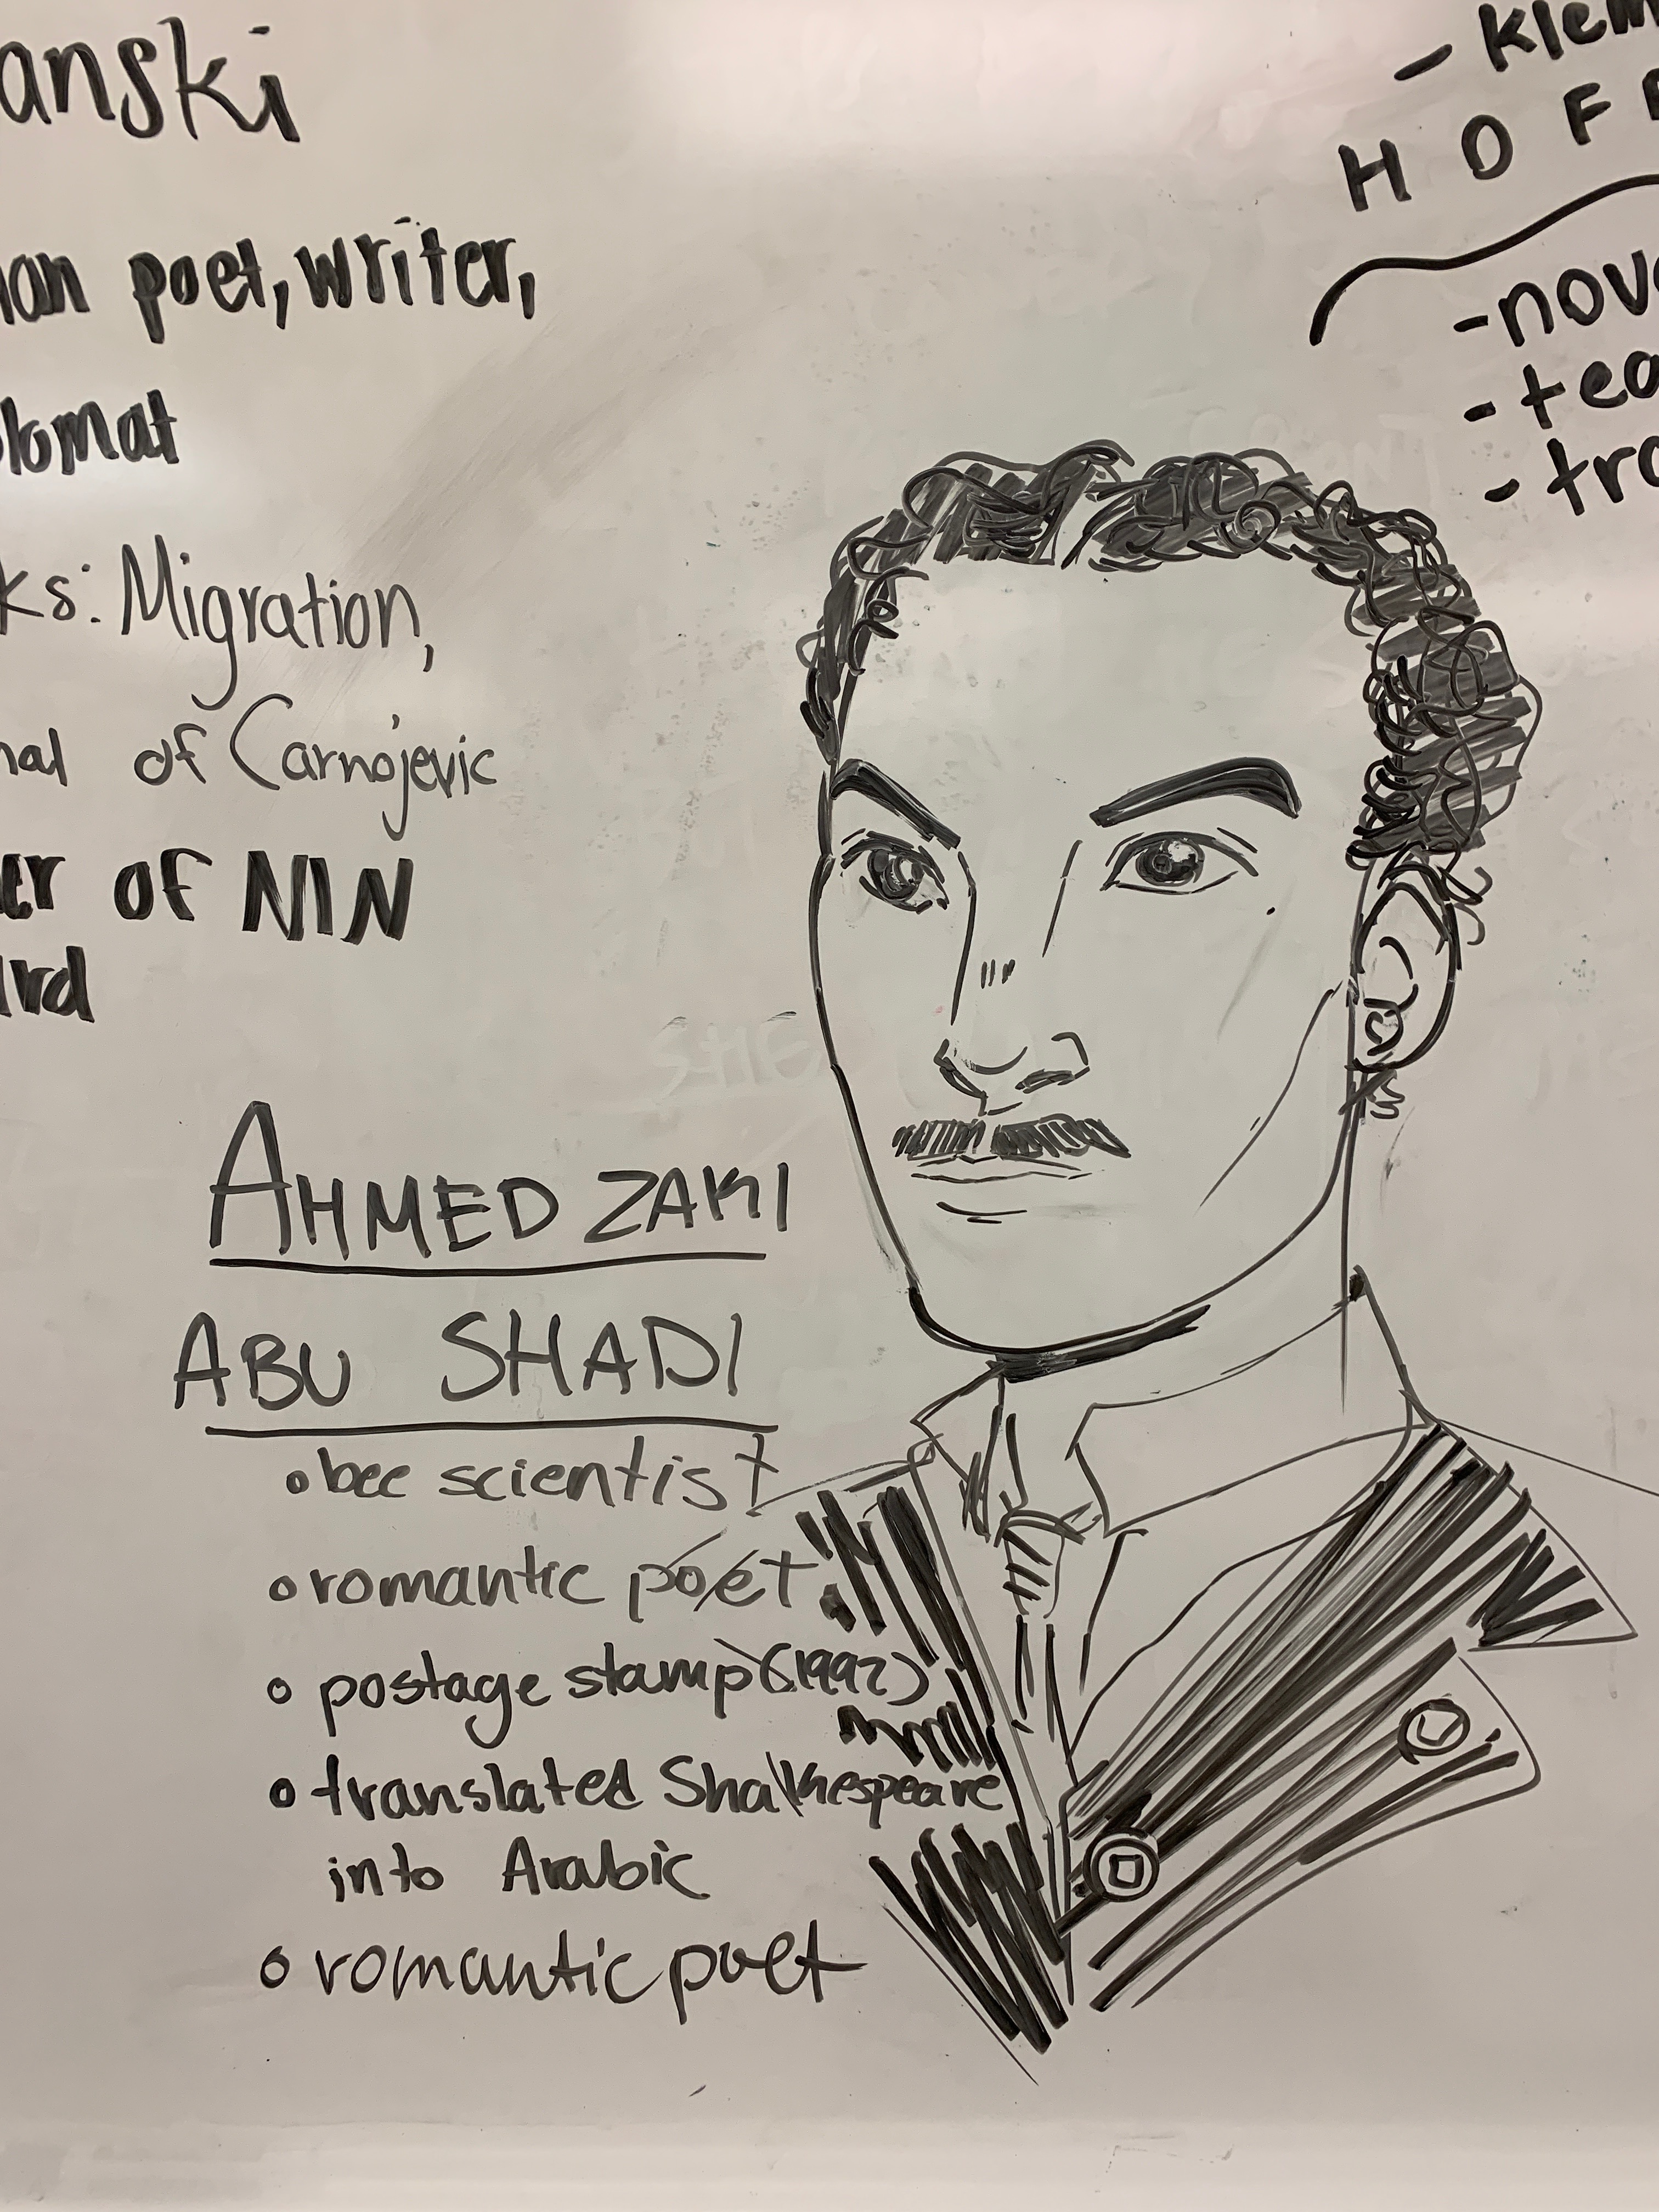 anski
poet, writer,
lomat
ks: Migration,
nal of Carnojevic
er of NIN
ard
- klem
HOF
- nov
- tea
- tra
AHMED ZAKI
ABU SHADI
bee scientist
romantic poet
postage stamp (1992)
translated Shakespeare
into Arabic
romantic poet